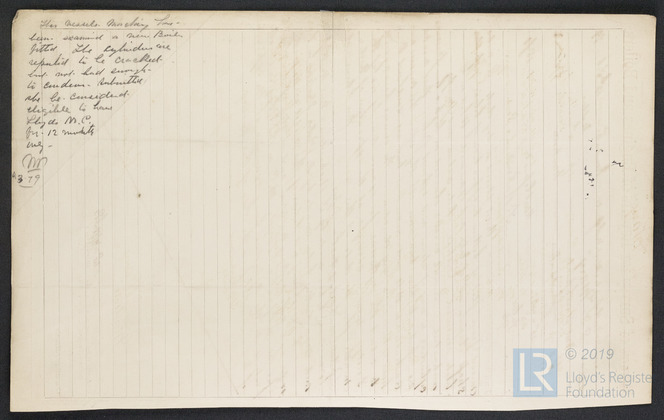 This vessels Machy has
been examined & new Boiler
fitted. The Cylinders are
reported to be cracked
but not bad enough
to condemn. Submitted
she be considered
eligible to have
Lloyds M.C.
for 12 months
only -
M
3.79
© 2019
Lloyd's Registe
Foundation
LR